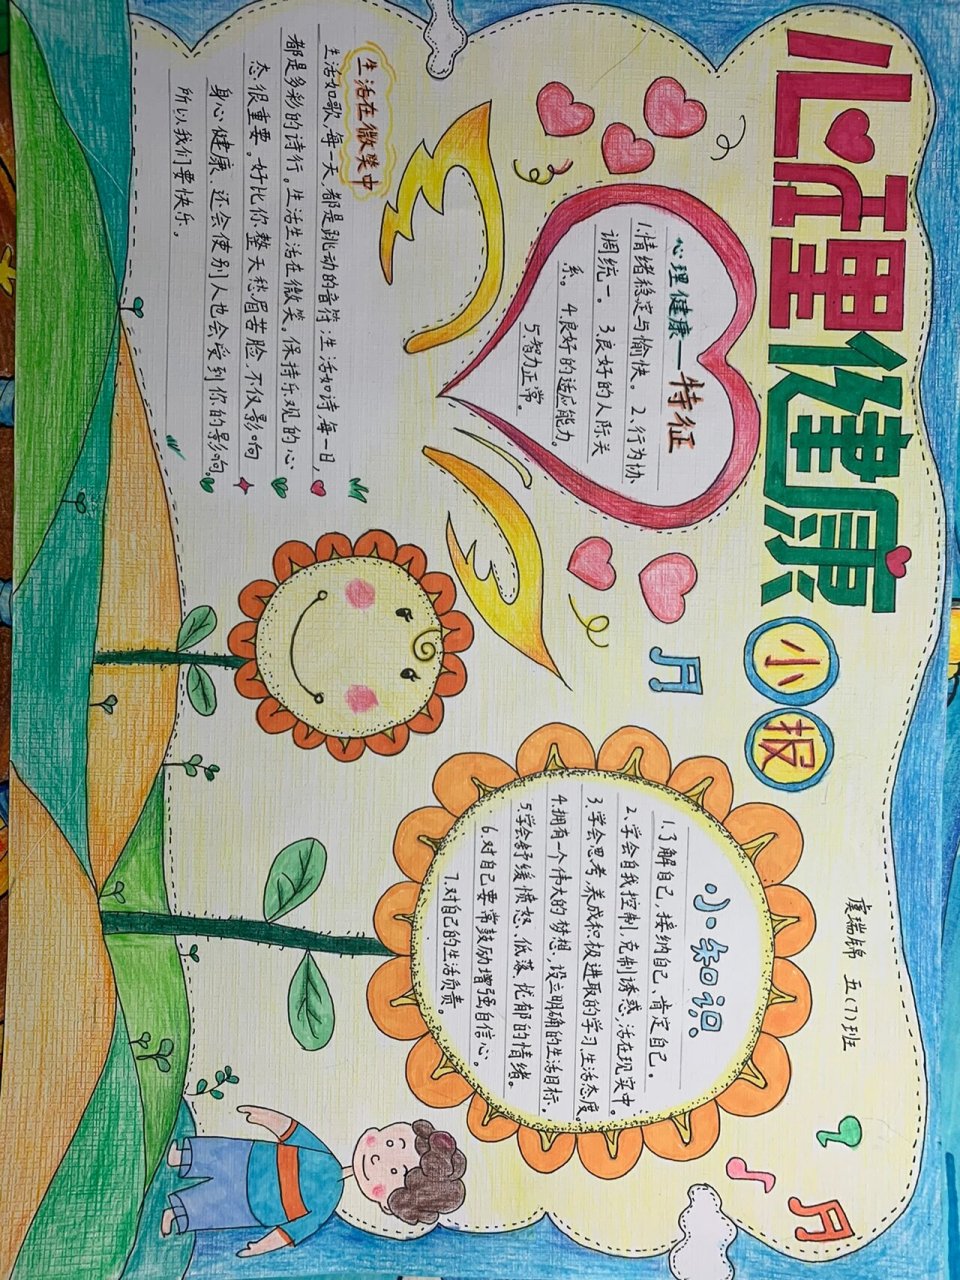 心理健康小报
虞瑞锦 五(7)班
心理健康—特征
1.情绪稳定与愉快。 2、行为协
调统一。 3.良好的人际关
系。 4.良好的适应能力。
5.智力正常。
生活在微笑中
生活如歌,每一天、都是跳动的音符;生活如诗,每一日,
都是多彩的诗行。生活生活在微笑。保持乐观的心
态.很重要。好比你.整天愁眉苦脸.不仅影响
身心健康、还会使别人也会受到你的影响。
所以我们要快乐。
小知识
1.了解自己,接纳自己、肯定自己。
2、学会自我控制,克制诱惑,活在现实中。
3.学会思考.养成积极进取的学习生活态度。
4.拥有一个伟大的梦想,设立明确的生活目标。
5.学会舒缓愤怒、低落、忧郁的情绪。
6.对自己要常鼓励增强自信心。
7.对自己的生活负责。